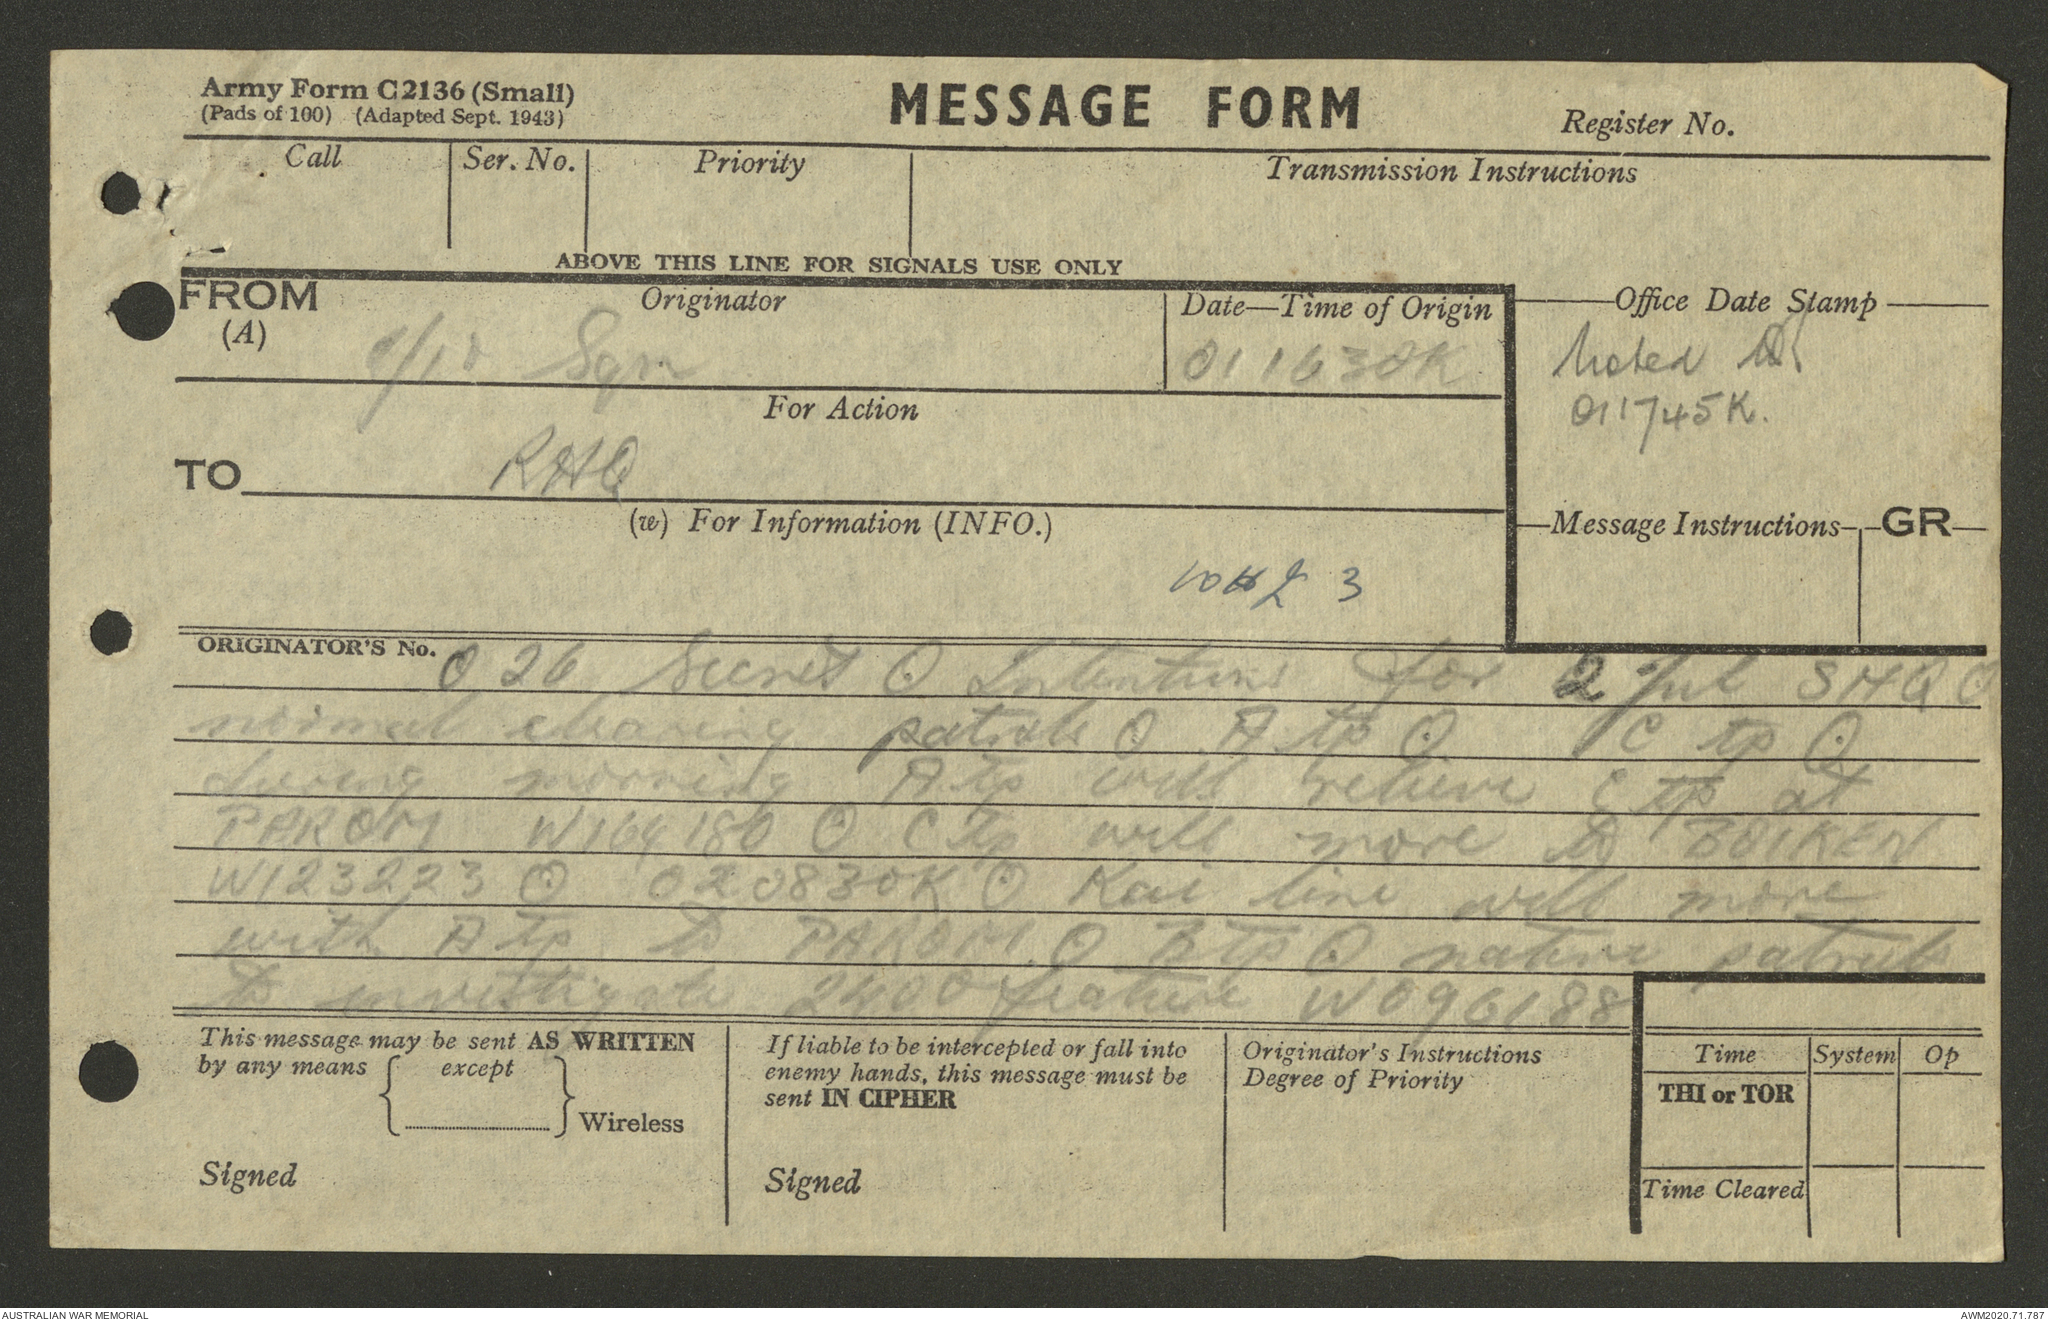 Army Form C2136 (Small)
(Pads of 100) (Adapted Sept. 1943)
MESSAGE FORM
Register No.
Call
Ser. No.
Priority
Transmission Instructions
ABOVE THIS LINE FOR SIGNALS USE ONLY
FROM
(A)
Originator
Date—Time of Origin
Office Date Stamp
Sqn
011630K
Noted
011745K.
For Action
TO
RHQ
(w) For Information (INFO.)
Message Instructions
GR
3
ORIGINATOR'S No.
O 26 Secret O Intentions for 2 Jul SHQ O
normal clearing patrols O A tp O C tp O
during morning A tp will relieve C tp at
PAROM W164180 O C tp will move to BOIKEN
W123223 O 020830K O Kai line will move
with A tp to PAROM O B Tp O native patrols
to investigate 2400 feature W096188
This message may be sent AS WRITTEN
by any means { except } Wireless
Signed
If liable to be intercepted or fall into
enemy hands, this message must be
sent IN CIPHER
Signed
Originator's Instructions
Degree of Priority
Time
System
Op
THI or TOR
Time Cleared
AUSTRALIAN WAR MEMORIAL
AWM2020.71.787